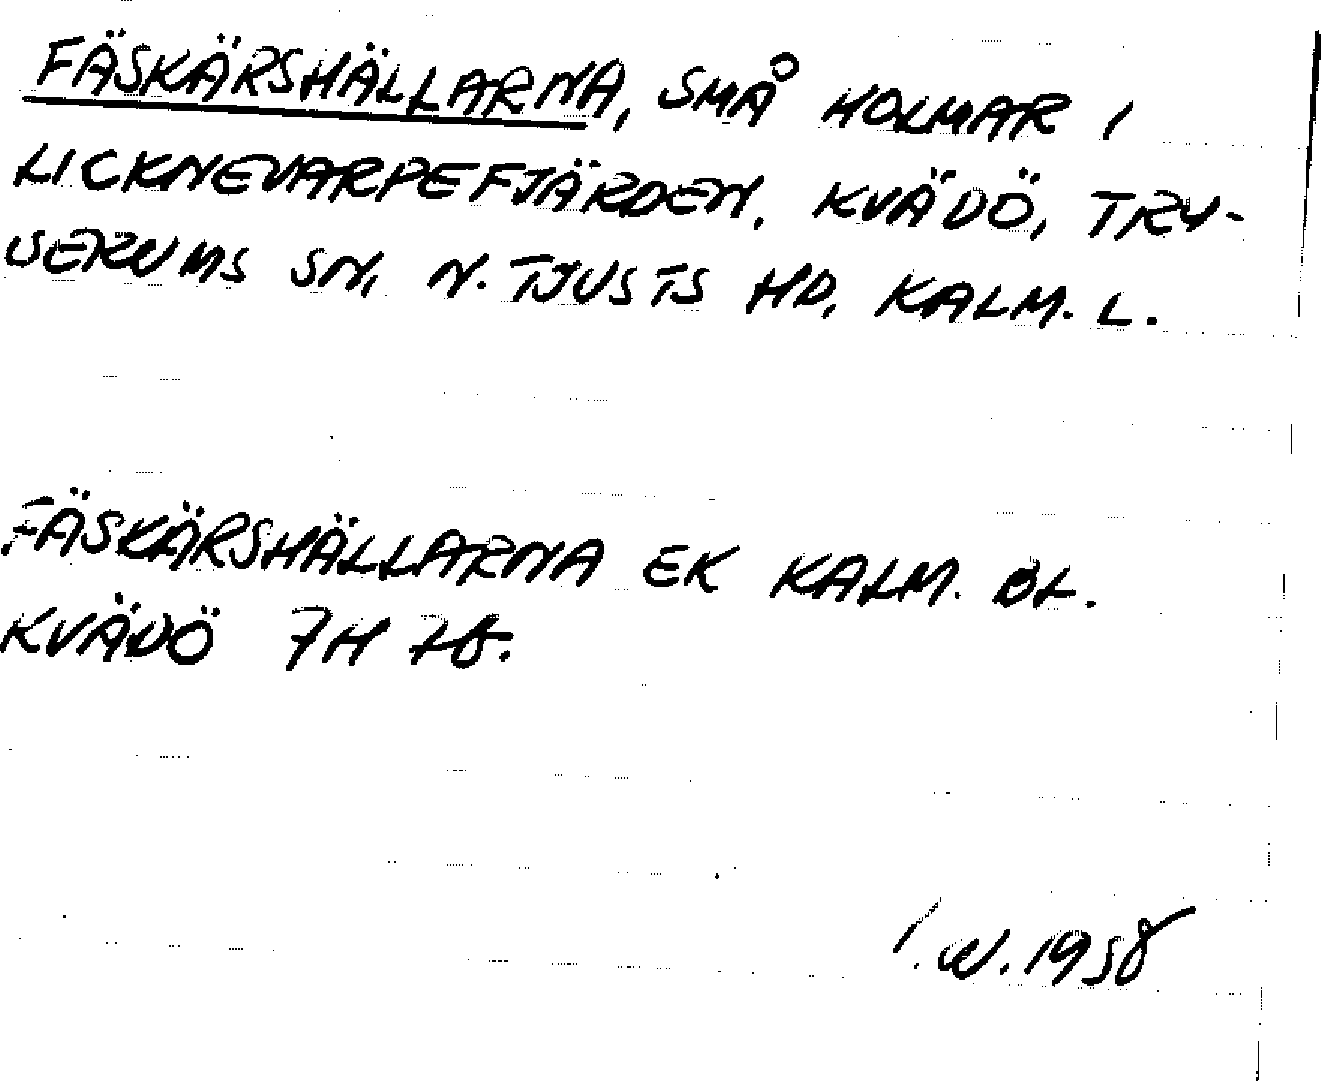 FÄSKÄRSHÄLLARNA, SMÅ HOLMAR I
LICKNEVARPEFJÄRDEN, KVÄDÖ, TRY-
SERUMS SN, N. TJUSTS HD, KALM. L.
FÄSKÄRSHÄLLARNA EK KALM. BL.
KVÄDÖ 7H
I.W. 1958